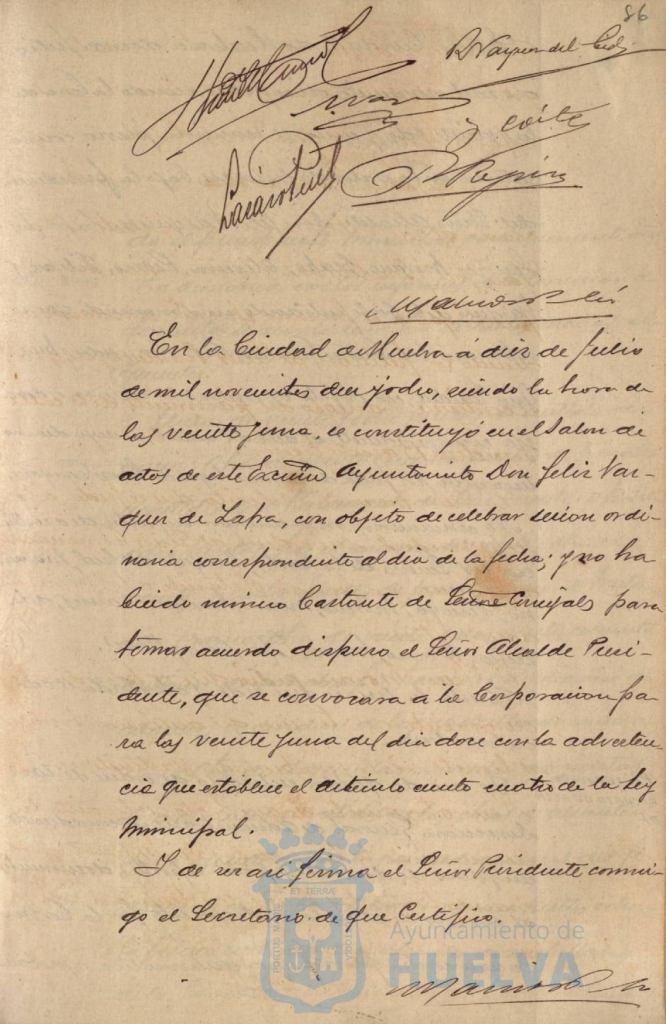 86
En la Ciudad de Huelva á diez de Julio
de mil novecientos diez y ocho, siendo la hora de
las veinte y una, se constituyó en el Salon de
actos de este Excmo Ayuntamiento Don Felix Vaz-
quez de Zafra, con objeto de celebrar sesion ordi-
naria correspondiente al dia de la fecha; y no ha
biendo número bastante de Señores Concejales para
tomar acuerdo dispuso el Señor Alcalde Presi-
dente, que se convocara a la Corporacion pa-
ra las veinte y una del dia doce con la adverten-
cia que establece el articulo ciento cuatro de la Ley
Municipal.
Y de ser asi firma el Señor Presidente conmi-
go el Secretario de que Certifico.
PORTUS MARIS ET TERRÆ CUSTODIA
Ayuntamiento de
HUELVA